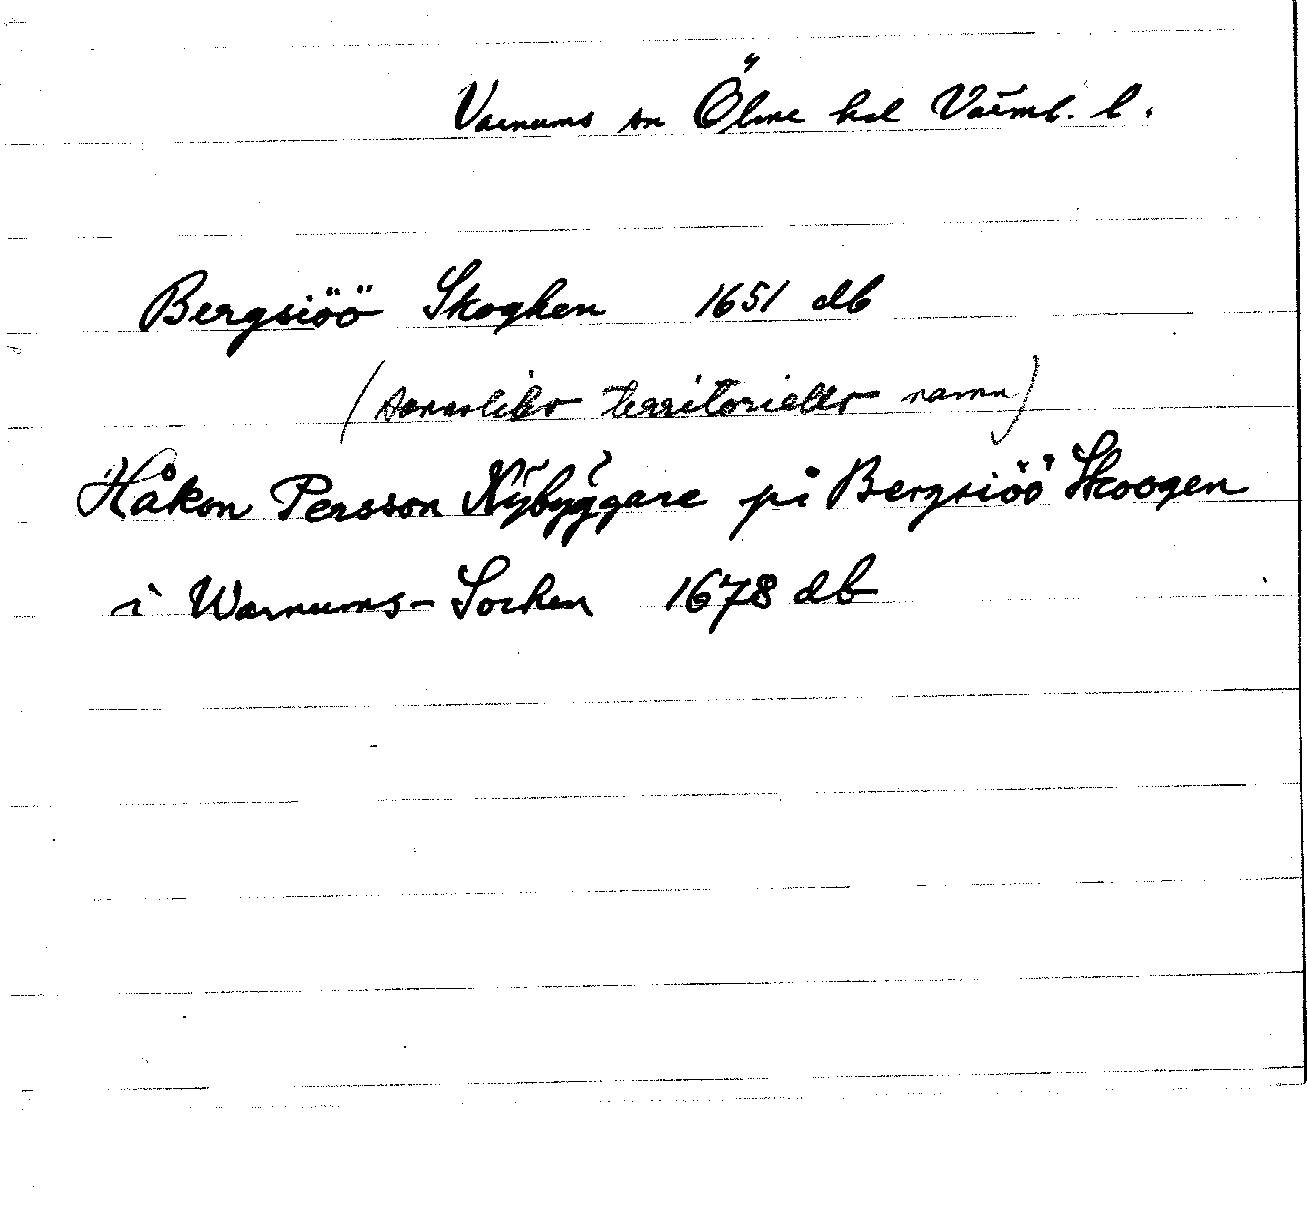 Varnums sn Ölme hd Värml. l.
Bergsiöö Skoghen 1651 db
(sannolikt territoriellt namn)
Håkon Persson Nÿbÿggare på Bergsiöö Skoogen
i Warnums-Sochen 1678 db